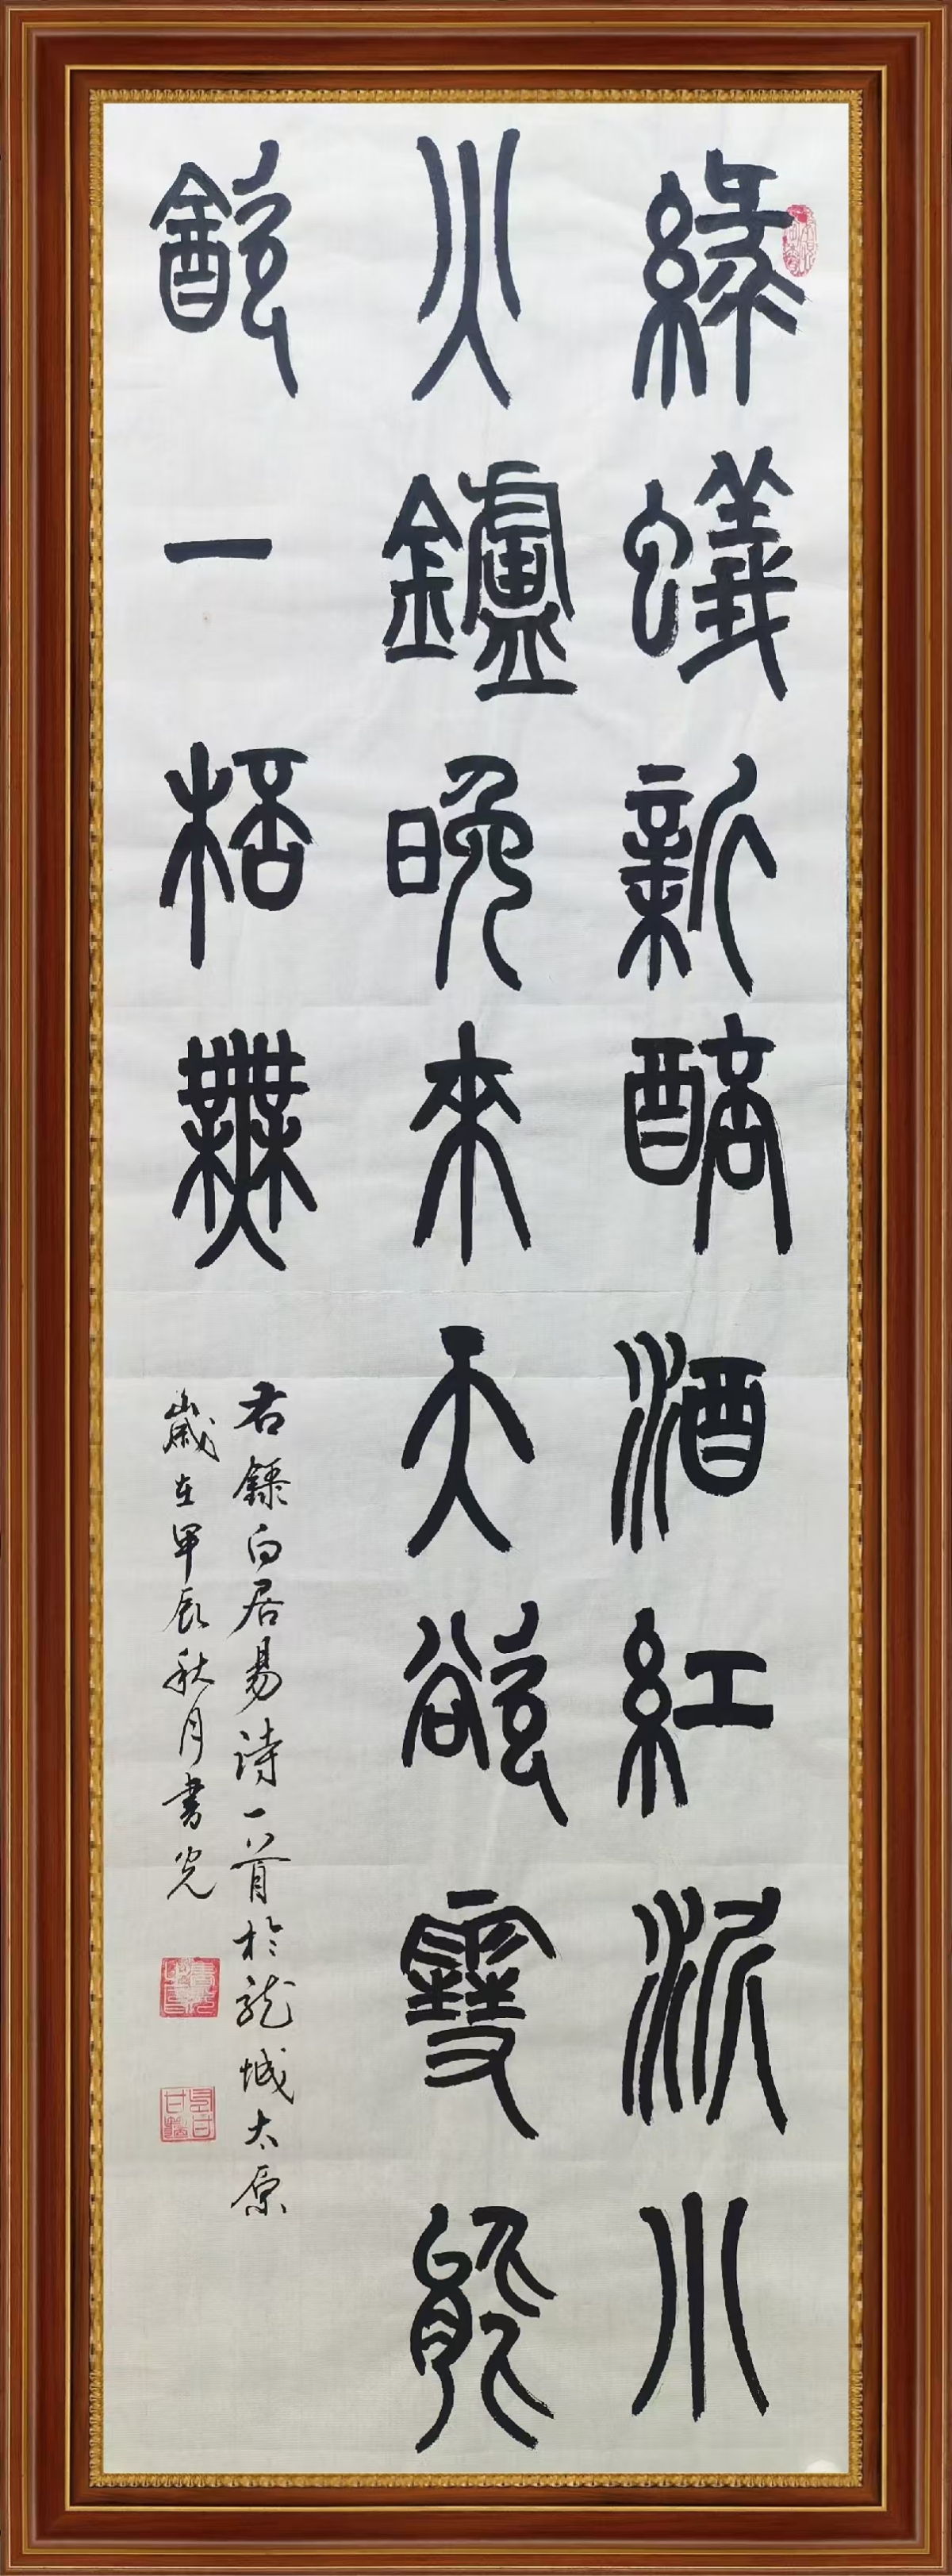 綠蟻新醅酒紅泥小
火鑪晚來天欲雪能
㱃一桮無
右錄白居易诗一首於龍城太原
歲在甲辰秋月書光